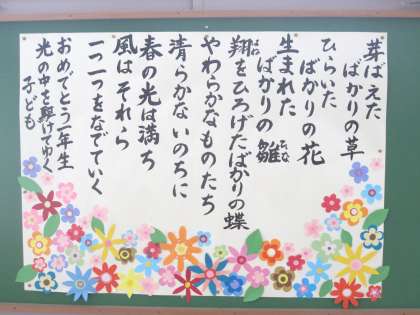 芽ばえた
ばかりの草
ひらいた
ばかりの花
生まれた
ばかりの雛
翔をひろげたばかりの蝶
やわらかなものたち
清らかないのちに
春の光は満ち
風はそれら
一つ一つをなでていく
おめでとう一年生
光の中を駆けてゆく
子ども